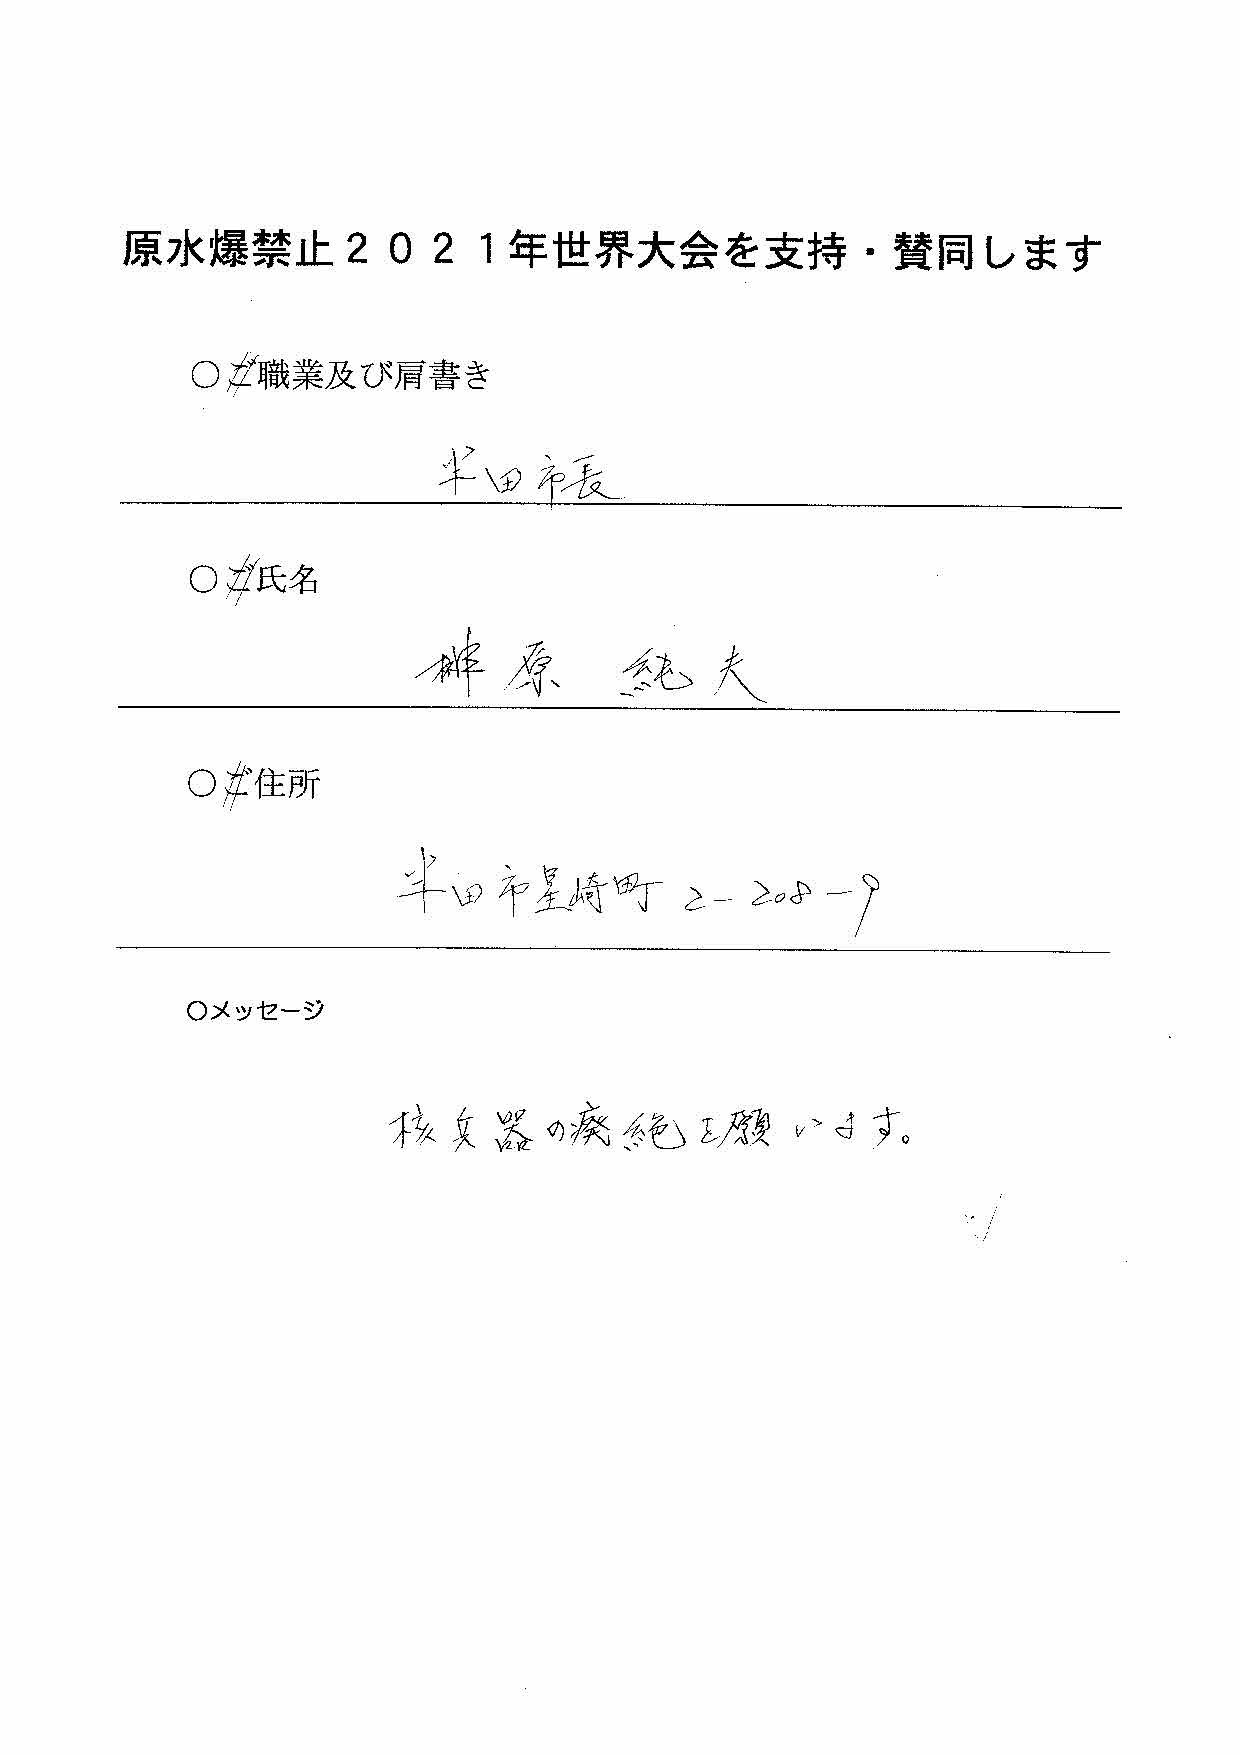 原水爆禁止２０２１年世界大会を支持・賛同します
○ご職業及び肩書き
半田市長
○ご氏名
榊原 純夫
○ご住所
半田市星崎町2-208-9
○メッセージ
核兵器の廃絶を願います。